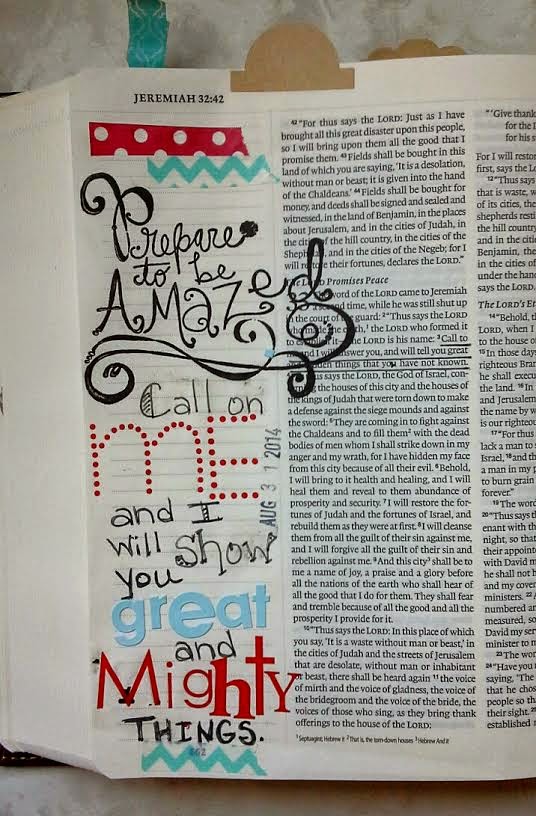 JEREMIAH 32:42
Prepare
to be
AMAZed
Call on
ME
and I
will show
you
great
and
Mighty
THINGS.
AUG 31 2014
42 "For thus says the LORD: Just as I have
brought all this great disaster upon this people,
so I will bring upon them all the good that I
promise them. 43 Fields shall be bought in this
land of which you are saying, 'It is a desolation,
without man or beast; it is given into the hand
of the Chaldeans.' 44 Fields shall be bought for
money, and deeds shall be signed and sealed and
witnessed, in the land of Benjamin, in the places
about Jerusalem, and in the cities of Judah, in
the cities of the hill country, in the cities of the
Shephelah, and in the cities of the Negeb; for I
will restore their fortunes, declares the LORD."
The LORD Promises Peace
word of the LORD came to Jeremiah
second time, while he was still shut up
in the court of the guard: 2 "Thus says the LORD
the LORD who formed it
to establish the LORD is his name: 3 Call to
me and I will answer you, and will tell you great
hidden things that you have not known.
says the LORD, the God of Israel, con-
the houses of this city and the houses of
the kings of Judah that were torn down to make
a defense against the siege mounds and against
the sword: 5 They are coming in to fight against
the Chaldeans and to fill them 2 with the dead
bodies of men whom I shall strike down in my
anger and my wrath, for I have hidden my face
from this city because of all their evil. 6 Behold,
I will bring to it health and healing, and I will
heal them and reveal to them abundance of
prosperity and security. 7 I will restore the for-
tunes of Judah and the fortunes of Israel, and
rebuild them as they were at first. 8 I will cleanse
them from all the guilt of their sin against me,
and I will forgive all the guilt of their sin and
rebellion against me. 9 And this city 3 shall be to
me a name of joy, a praise and a glory before
all the nations of the earth who shall hear of
all the good that I do for them. They shall fear
and tremble because of all the good and all the
prosperity I provide for it.
10 "Thus says the LORD: In this place of which
you say, 'It is a waste without man or beast,' in
the cities of Judah and the streets of Jerusalem
that are desolate, without man or inhabitant
or beast, there shall be heard again 11 the voice
of mirth and the voice of gladness, the voice of
the bridegroom and the voice of the bride, the
voices of those who sing, as they bring thank
offerings to the house of the LORD:
1 Septuagint; Hebrew it 2 That is, the torn-down houses 3 Hebrew And it
"'Give thank
for the
for his s
For I will restor
first, says the Lo
12 "Thus says
that is waste, w
of its cities, the
shepherds resti
the hill country
and in the citie
Benjamin, the
in the cities of
under the hand
says the LORD.
The LORD's Et
14 "Behold, th
LORD, when I
to the house of
15 In those days
righteous Bran
he shall execu
the land. 16 In
and Jerusalem
the name by w
is our righteou
17 "For thus
lack a man to s
Israel, 18 and th
a man in my p
to burn grain
forever."
19 The word
20 "Thus says th
enant with th
night, so that
their appointe
with David m
he shall not h
and my coven
ministers. 22 A
numbered an
measured, so
David my serv
minister to m
23 The wor
24 "Have you n
saying, 'The
that he chose
people so tha
their sight. 25
established